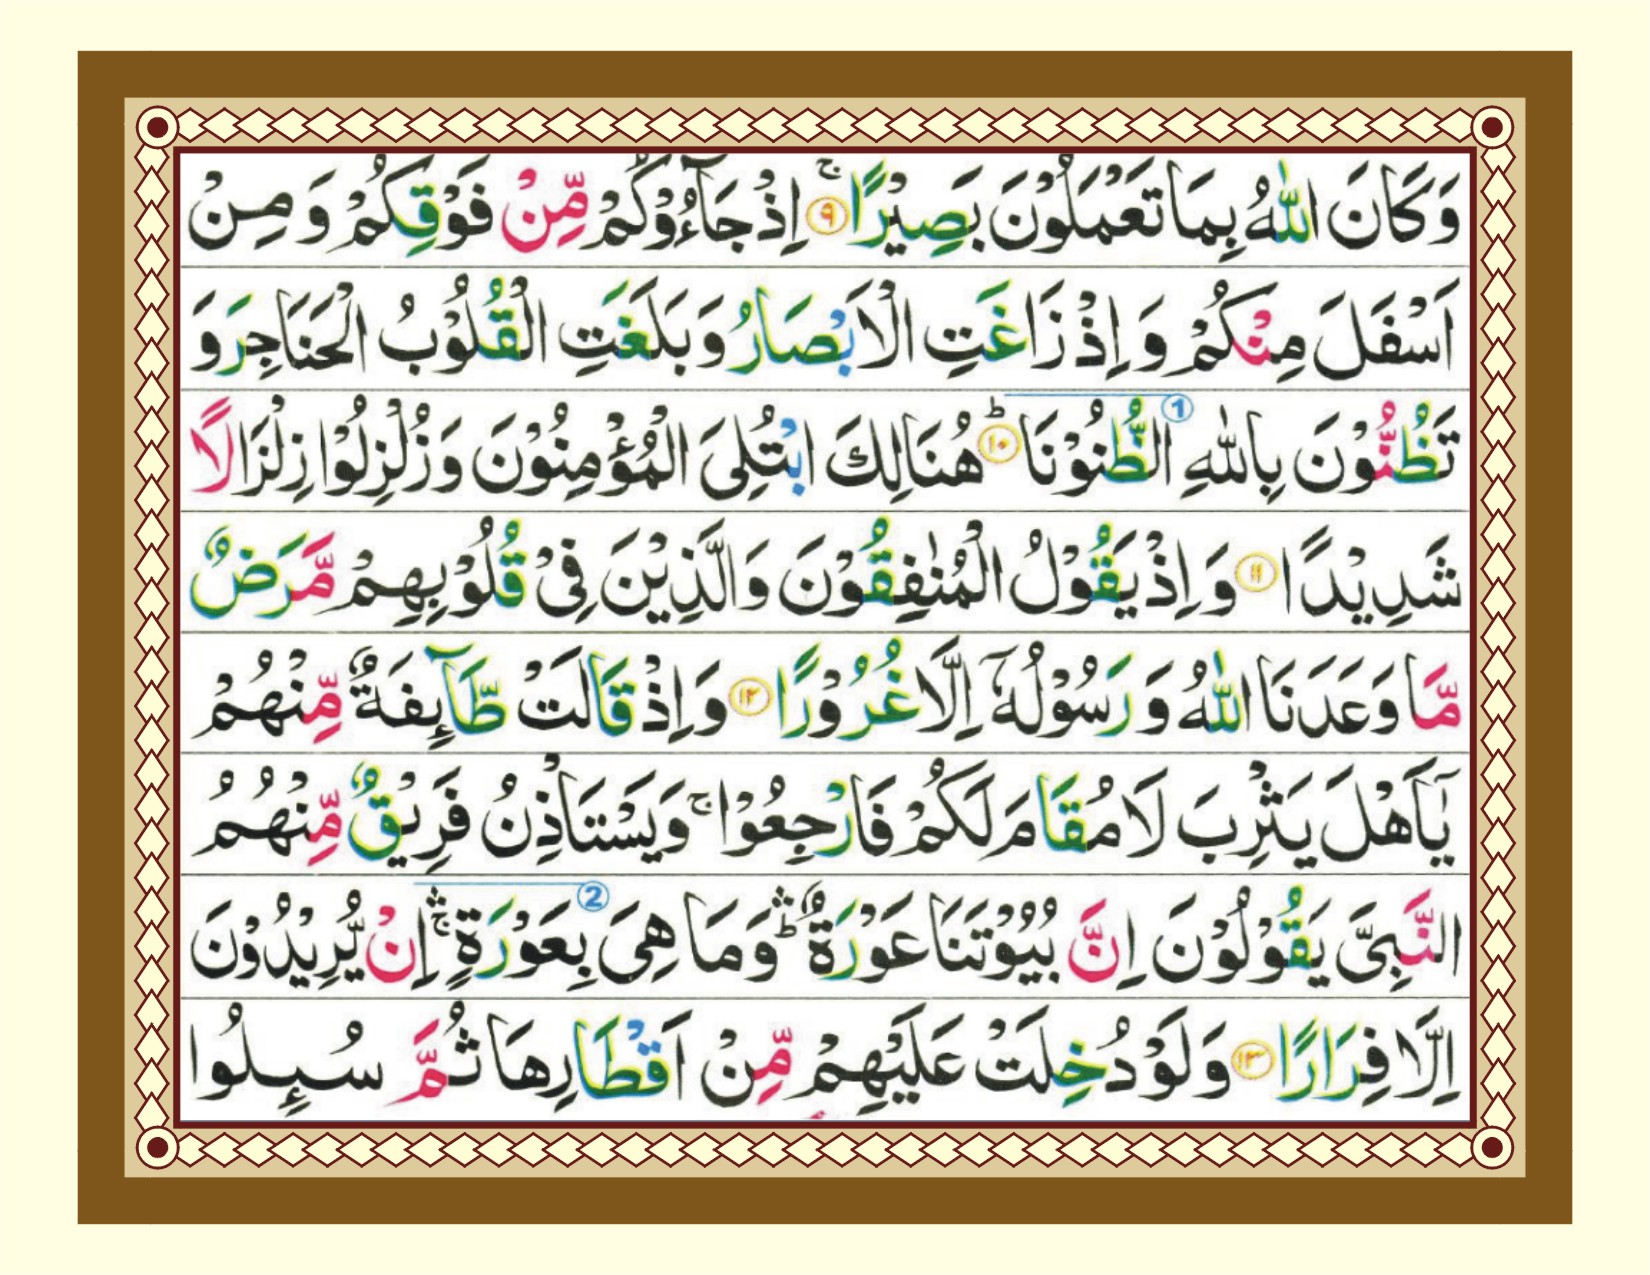 وَكَانَ اللّٰهُ بِمَا تَعْمَلُوْنَ بَصِيْرًا ۚ ۹ اِذْ جَآءُوْكُمْ مِّنْ فَوْقِكُمْ وَ مِنْ
اَسْفَلَ مِنْكُمْ وَ اِذْ زَاغَتِ الْاَبْصَارُ وَ بَلَغَتِ الْقُلُوْبُ الْحَنَاجِرَ وَ
تَظُنُّوْنَ بِاللّٰهِ الظُّنُوْنَا 1 ؕ ۱۰ هُنَالِكَ ابْتُلِیَ الْمُؤْمِنُوْنَ وَ زُلْزِلُوْا زِلْزَالًا
شَدِيْدًا ۱۱ وَ اِذْ يَقُوْلُ الْمُنٰفِقُوْنَ وَالَّذِيْنَ فِیْ قُلُوْبِهِمْ مَّرَضٌ
مَّا وَعَدَنَا اللّٰهُ وَ رَسُوْلُهٗۤ اِلَّا غُرُوْرًا ۱۲ وَ اِذْ قَالَتْ طَّآىِٕفَةٌ مِّنْهُمْ
يٰۤاَهْلَ يَثْرِبَ لَا مُقَامَ لَكُمْ فَارْجِعُوْا ۚ وَيَسْتَاْذِنُ فَرِيْقٌ مِّنْهُمُ
النَّبِیَّ يَقُوْلُوْنَ اِنَّ بُيُوْتَنَا عَوْرَةٌ ۛؕ وَمَا هِیَ بِعَوْرَةٍ 2 ۛۚ اِنْ يُّرِيْدُوْنَ
اِلَّا فِرَارًا ۱۳ وَ لَوْ دُخِلَتْ عَلَيْهِمْ مِّنْ اَقْطَارِهَا ثُمَّ سُىِٕلُوا